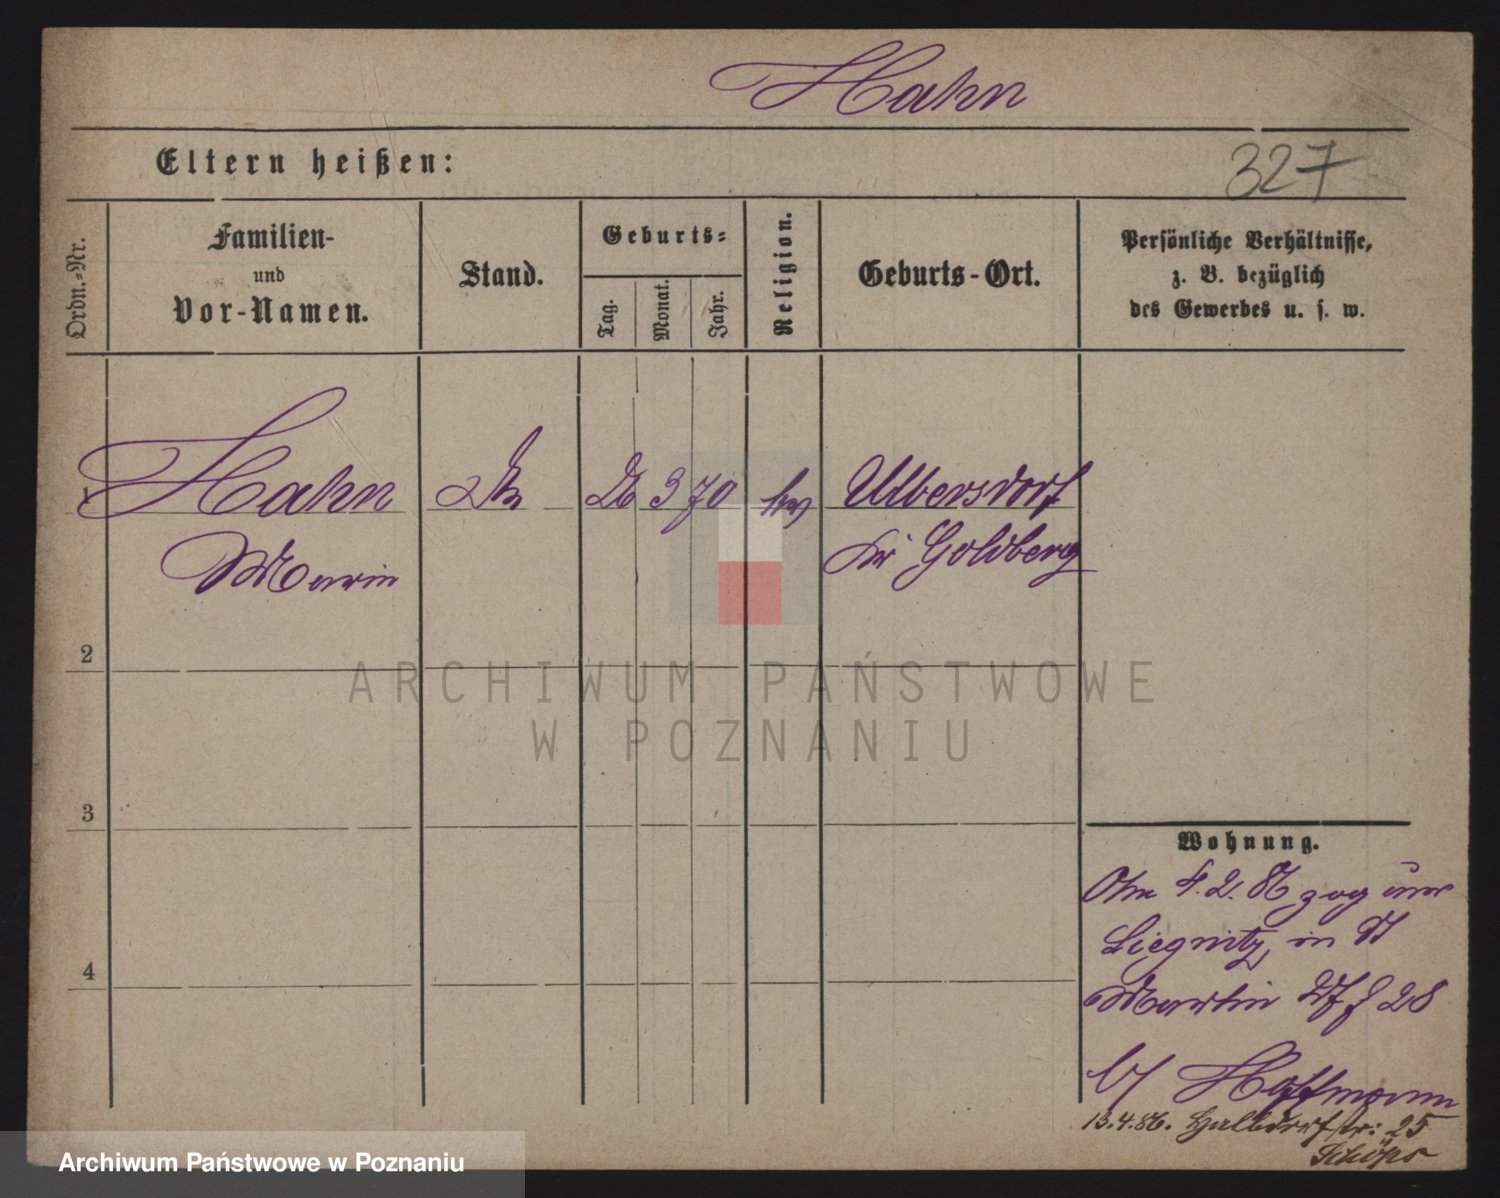 Hahn
Eltern heißen:
327
Ordn.-Nr.
Familien-
und
Vor-Namen.
Stand.
Geburts-
Tag.
Monat.
Jahr.
Religion.
Geburts-Ort.
Persönliche Verhältnisse,
z. B. bezüglich
des Gewerbes u. s. w.
1
Hahn
26 3 70
ev
Ulbersdorf
Marie
Kr Goldberg
2
ARCHIWUM PAŃSTWOWE
W POZNANIU
3
Wohnung.
4. 2. 86 zog
Liegnitz, in St
4
Martin 28
b/ Hoffmann
13.4.86. Halbdorfstr: 25
Archiwum Państwowe w Poznaniu